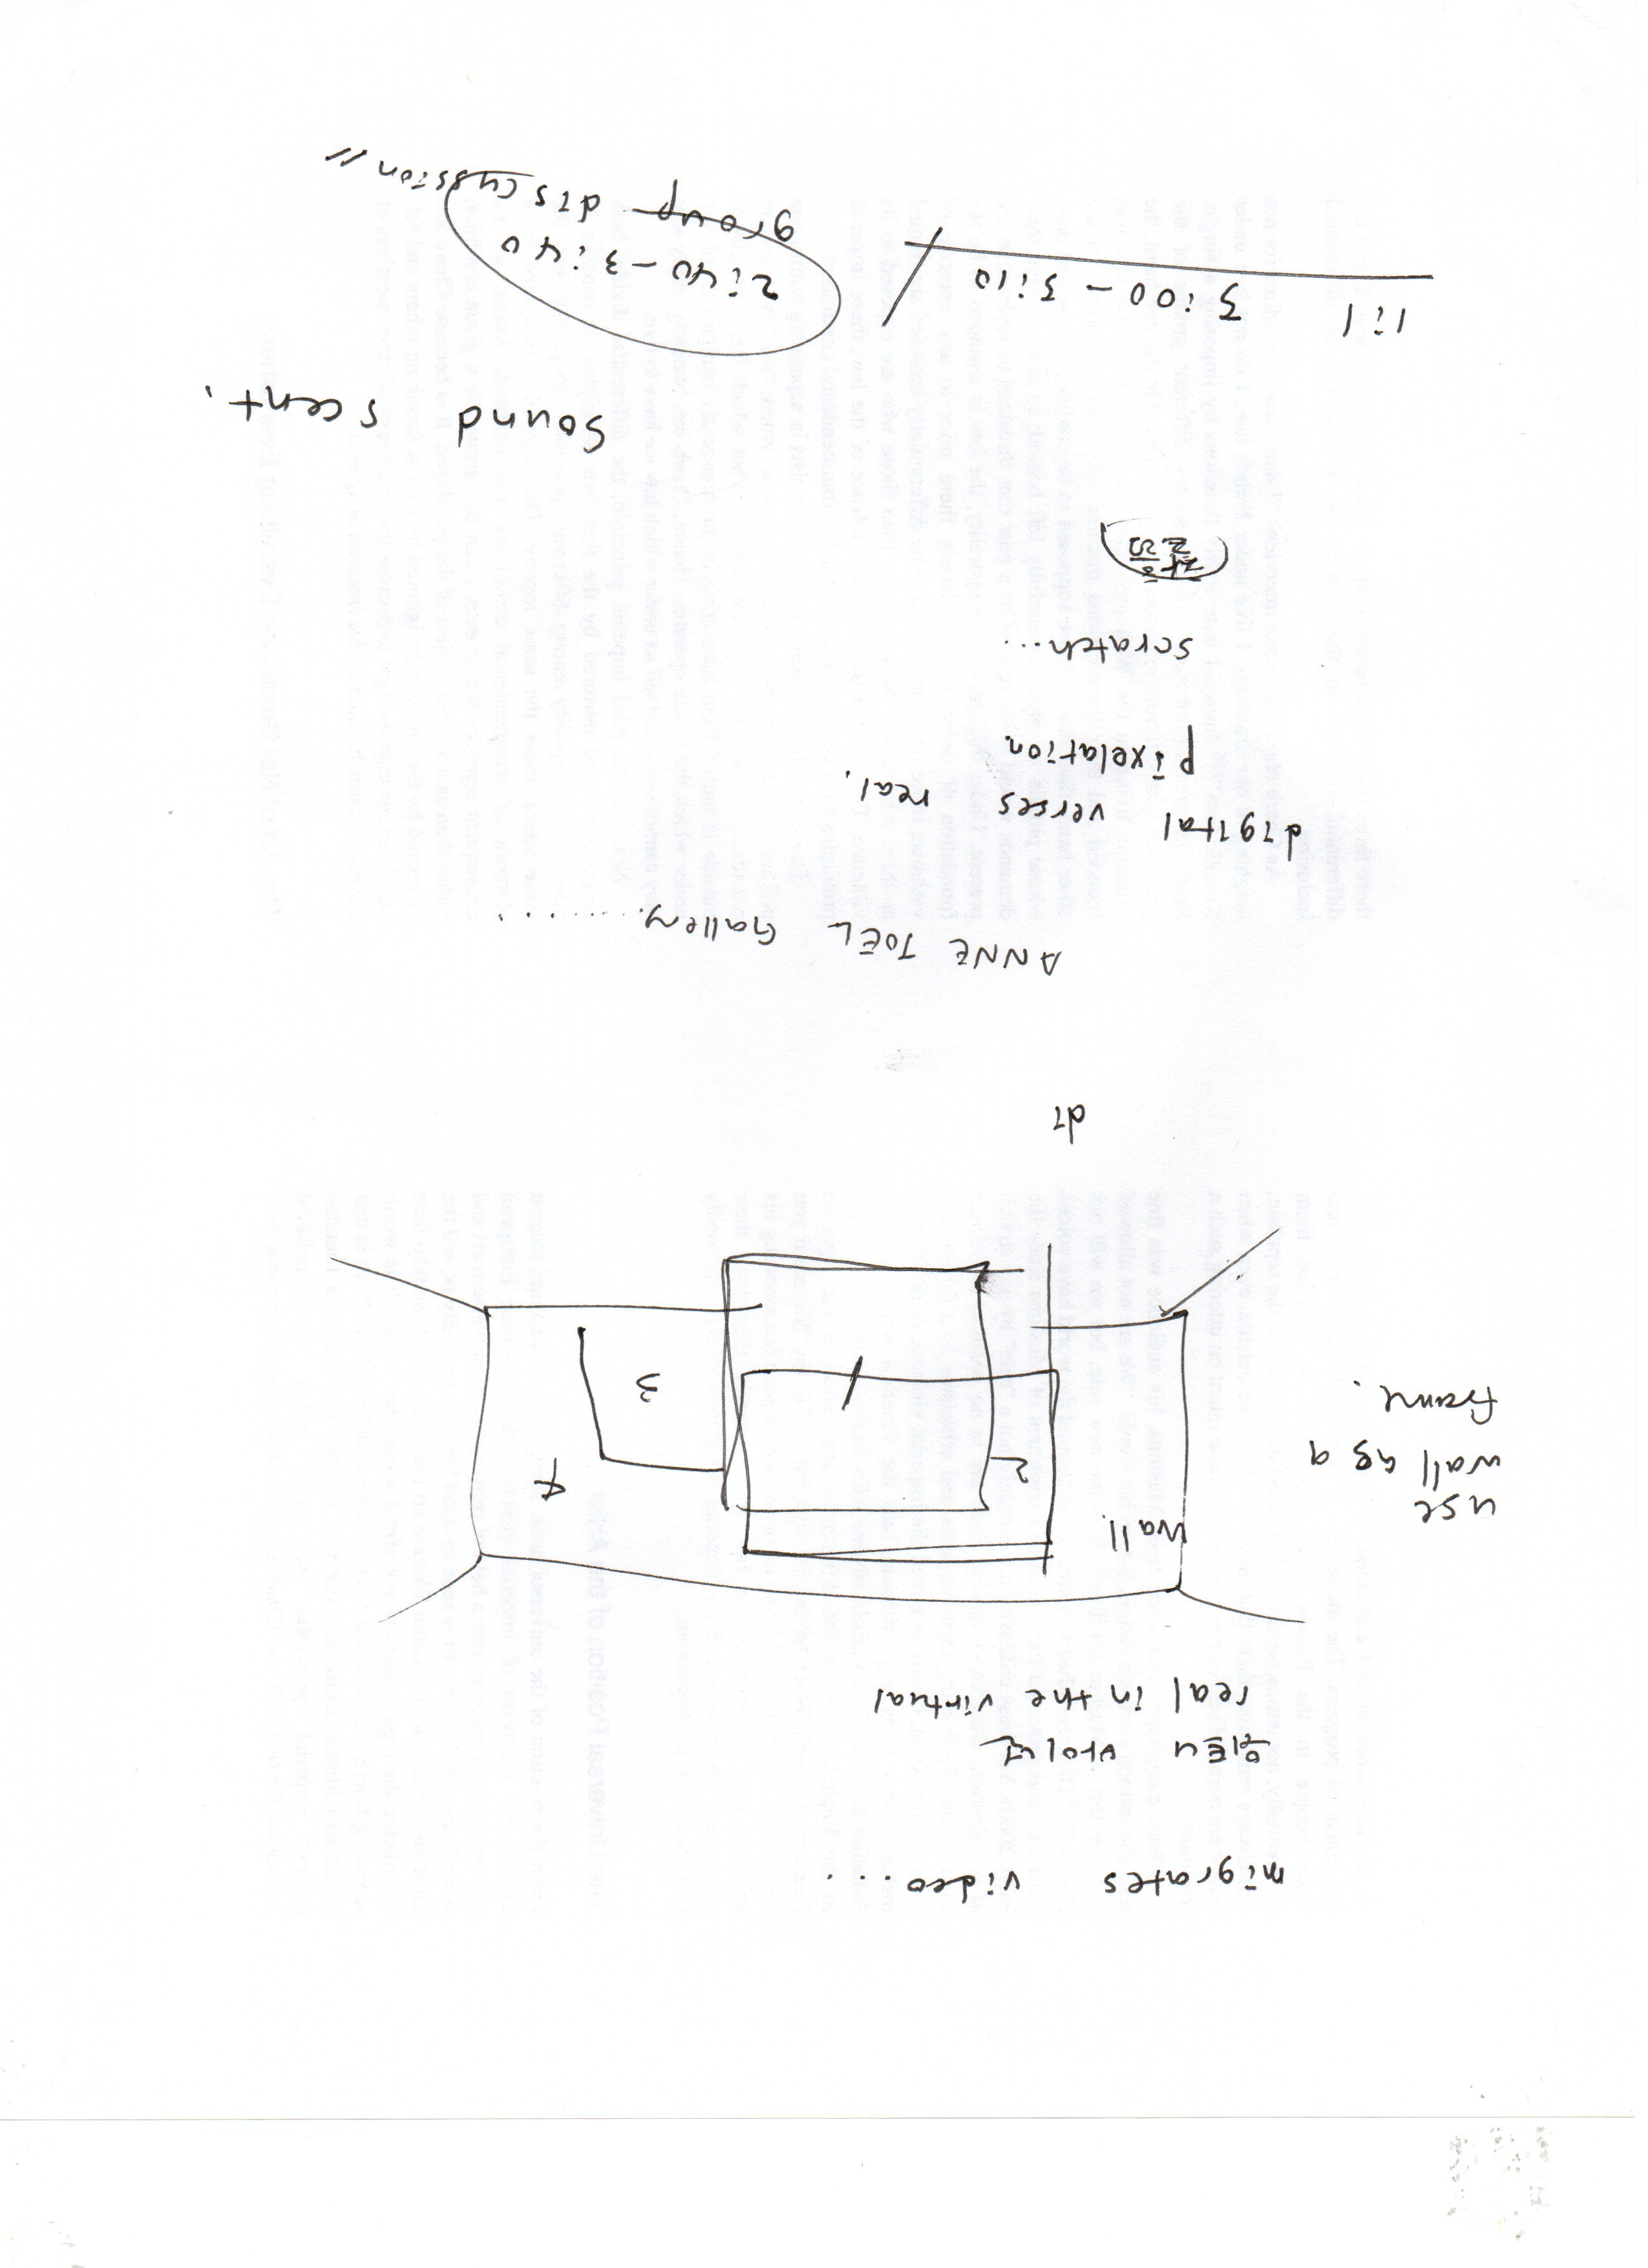 migrates video...
위트니 바이널
real in the virtual
wall.
use
wall as a
frame.
2
1
3
4
di
ANNE JOEL Gallery........
digital verses real.
pixelation.
scratch...
찰흙
Sound scent.
1:1 3:00-3:10 / 2:40-3:40
group discussion